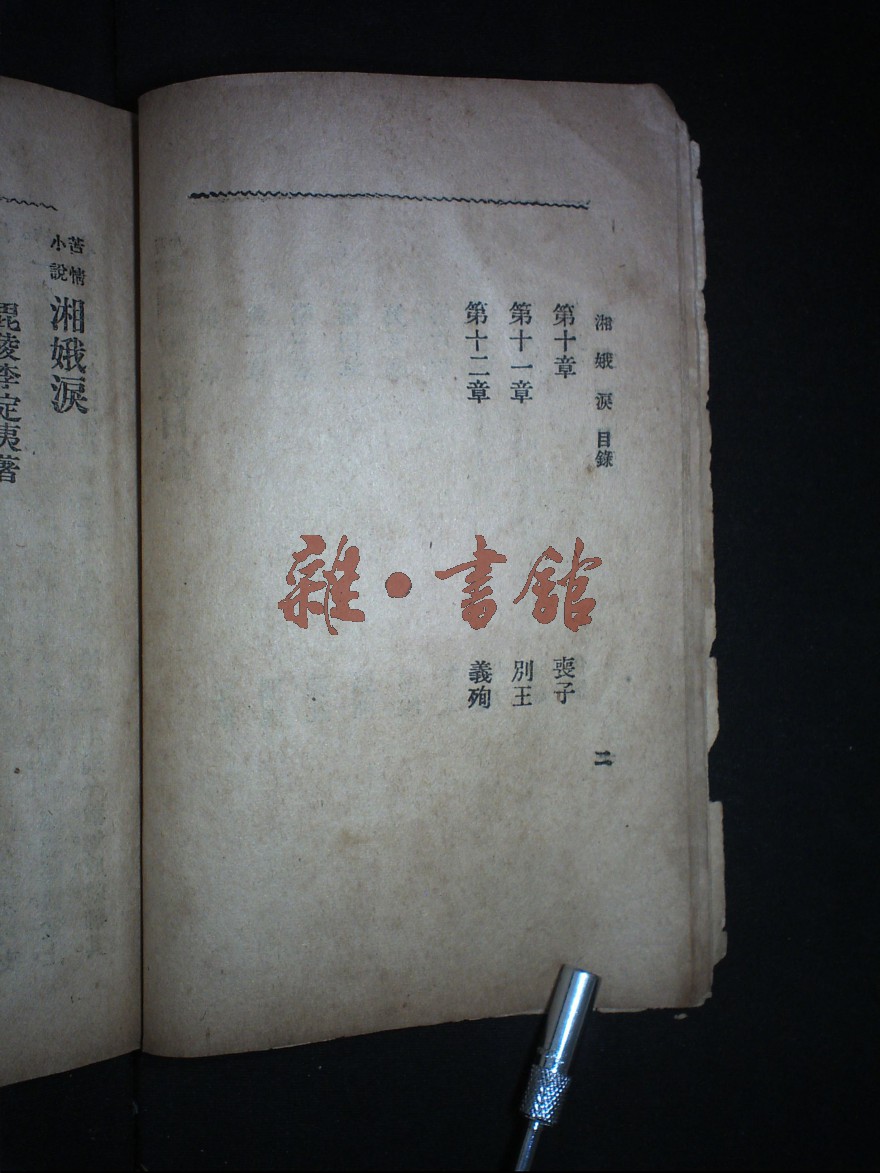 湘娥淚目錄
二
第十章 喪子
第十一章 別王
第十二章 義殉
雜·書館
苦情小說 湘娥淚
毘陵李定夷著